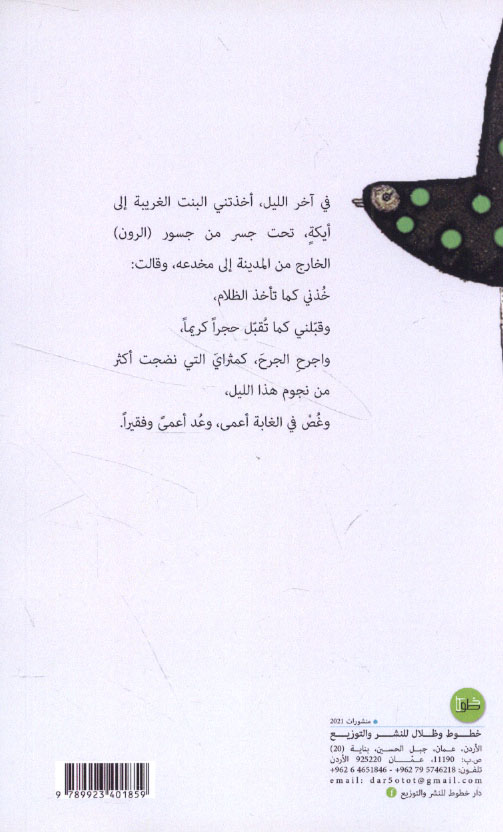 في آخر الليل، أخذتني البنت الغريبة إلى
أيكةٍ، تحت جسر من جسور (الرون)
الخارج من المدينة إلى مخدعه، وقالت:
خُذني كما تأخذ الظلام،
وقبّلني كما تُقبّل حجراً كريماً،
واجرحِ الجرحَ، كمثرايَ التي نضجت أكثر
من نجوم هذا الليل،
وغُصْ في الغابة أعمى، وعُد أعمىً وفقيراً.
خطوط
منشورات 2021
خطــوط وظلال للنشــر والتوزيــع
الأردن، عمـان، جبـل الحسين، بنايـة (20)
ص.ب: 11190، عمّــان 925220 الأردن
تلفـون: 5746218 79 962+ - 4651846 6 962+
email: dar5otot@gmail.com
دار خطوط للنشر والتوزيع
9 789923 401859